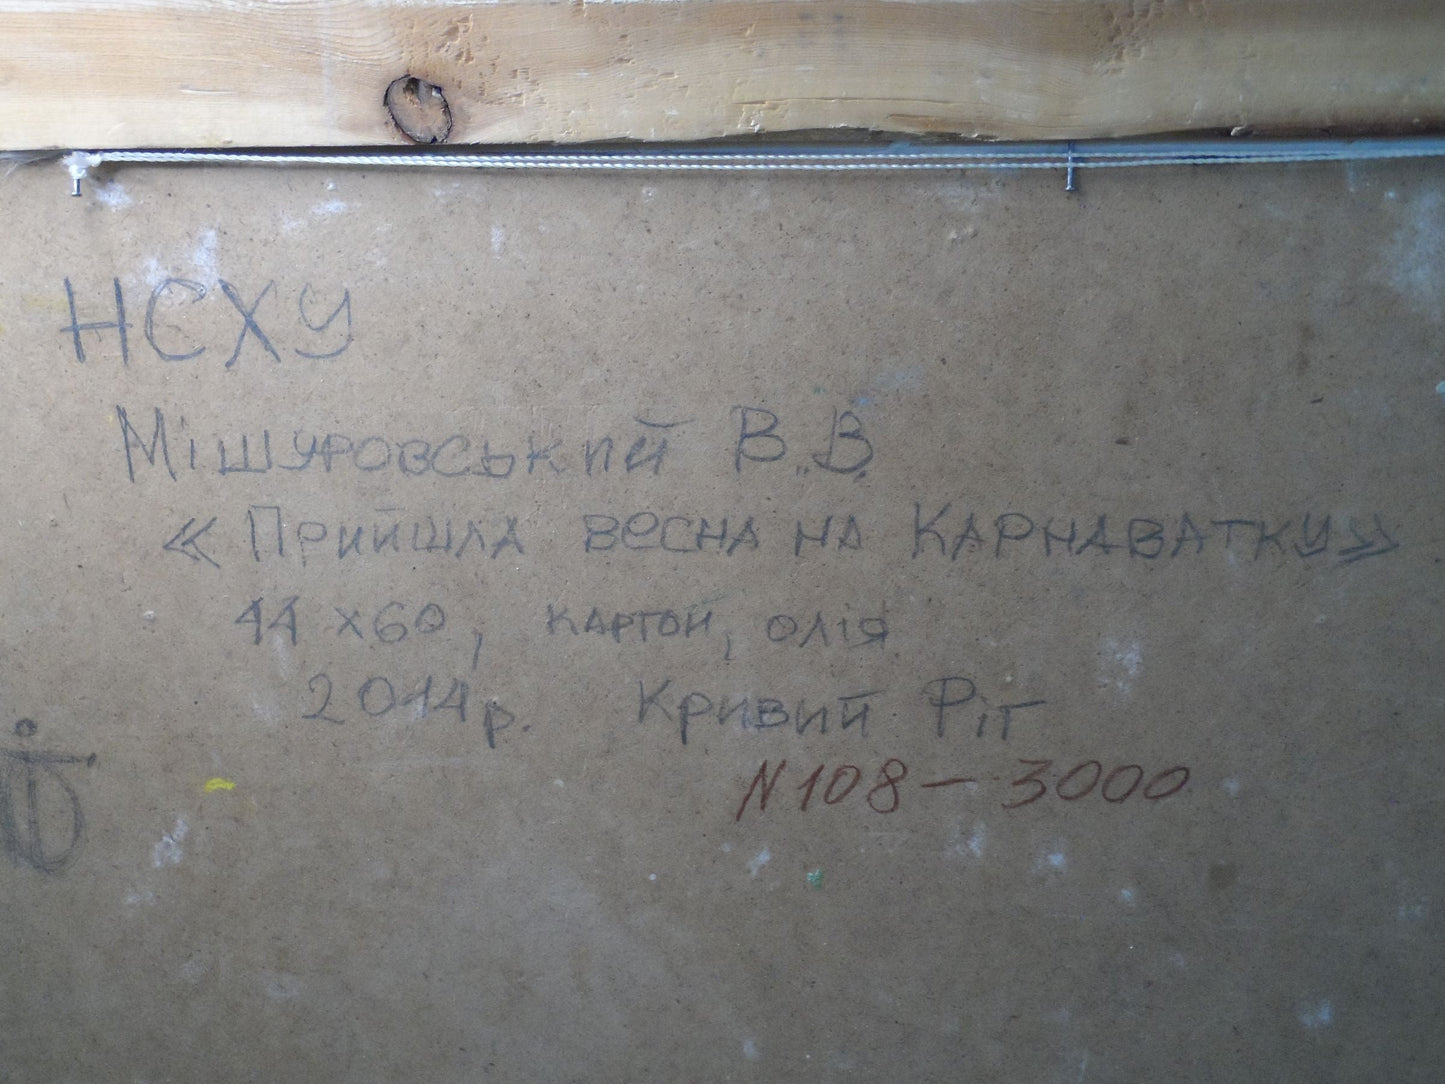 НСХУ
Мішуровський В.В.
«Прийшла весна на Карнаватку»
44 х 60, картон, олія
2014 р. Кривий Ріг
N108 – 3000